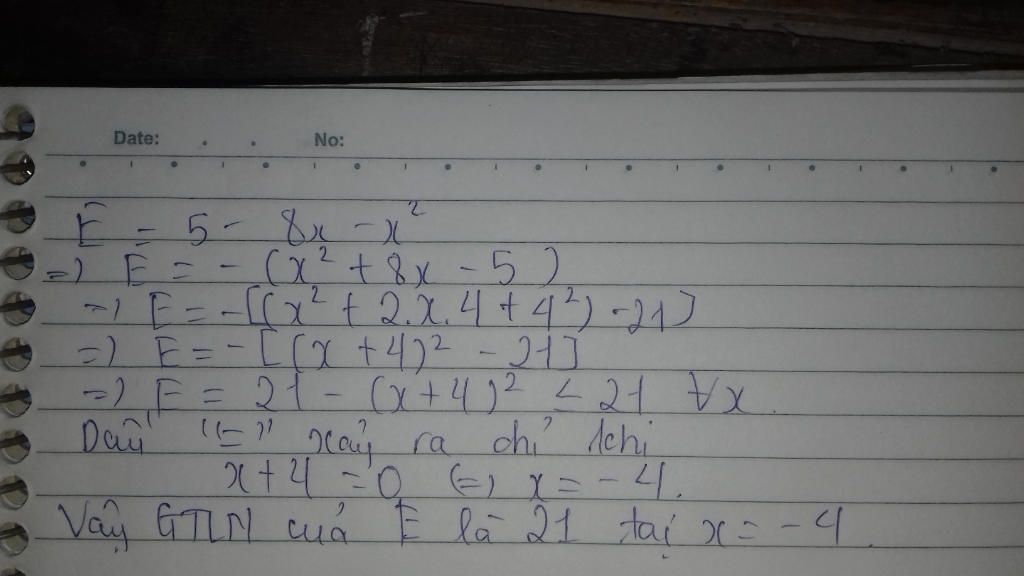 Date: . . No:
E = 5 - 8x - x²
=) E = - (x² + 8x - 5)
=) E = -[(x² + 2.x.4 + 4²) - 21]
=) E = - [(x + 4)² - 21]
=) E = 21 - (x + 4)² ≤ 21 ∀x.
Dấu "=" xảy ra chỉ khi
x + 4 = 0 (=) x = - 4.
Vậy GTLN của E là 21 tại x = - 4.